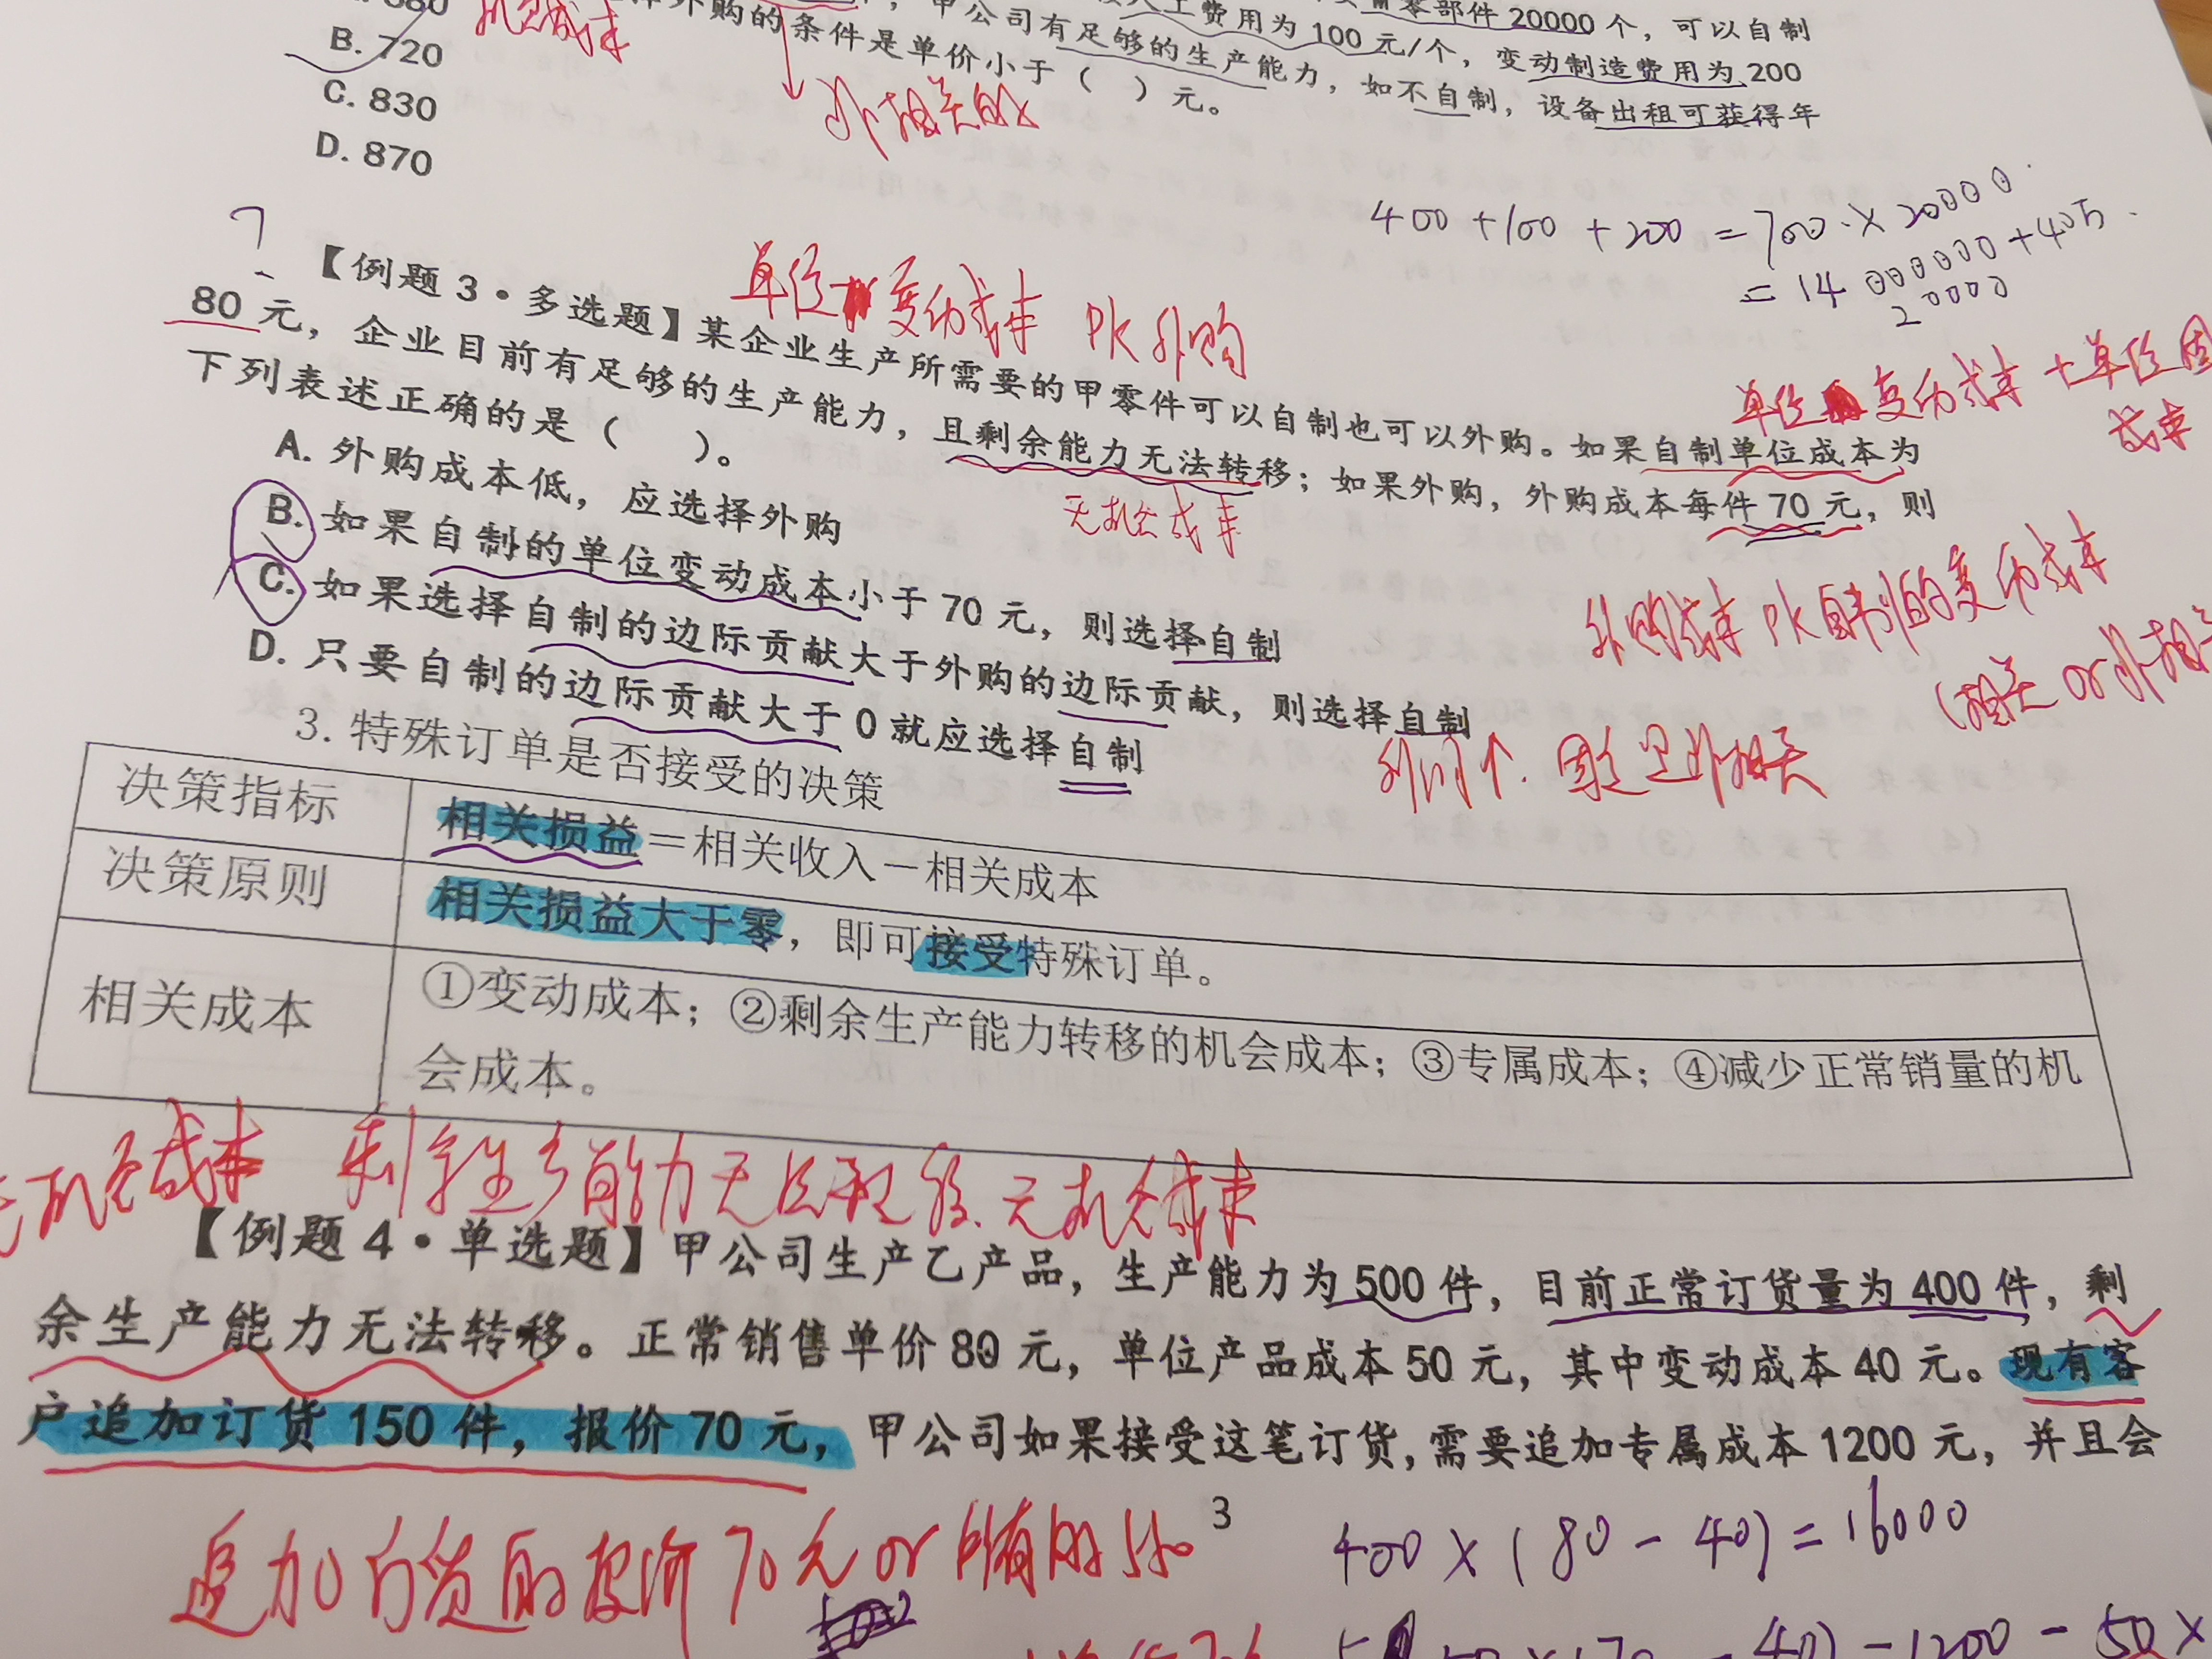 零部件 20000 个，可以自制
工费用为 100 元/个，变动制造费用为 200
甲公司有足够的生产能力，如不自制，设备出租可获得年
外购的条件是单价小于（ ）元。
机会成本
非相关成
B. 720
C. 830
D. 870
400 + 100 + 200 = 700 × 20000
= 14 000000 + 40万
20000
？
单位变动成本 PK 外购
【例题 3·多选题】某企业生产所需要的甲零件可以自制也可以外购。如果自制单位成本为
80 元，企业目前有足够的生产能力，且剩余能力无法转移；如果外购，外购成本每件 70 元，则
下列表述正确的是（ ）。
单位变动成本 + 单位固
成本
无机会成本
A. 外购成本低，应选择外购
B. 如果自制的单位变动成本小于 70 元，则选择自制
C. 如果选择自制的边际贡献大于外购的边际贡献，则选择自制
D. 只要自制的边际贡献大于 0 就应选择自制
外购成本 PK 自制的变动成本
(相关 or 非相
3. 特殊订单是否接受的决策
决策指标 相关损益＝相关收入－相关成本
决策原则 相关损益大于零，即可接受特殊订单。
相关成本 ①变动成本；②剩余生产能力转移的机会成本；③专属成本；④减少正常销量的机
会成本。
无机会成本 剩余生产能力无法转移、无机会成本
【例题 4·单选题】甲公司生产乙产品，生产能力为 500 件，目前正常订货量为 400 件，剩
余生产能力无法转移。正常销售单价 80 元，单位产品成本 50 元，其中变动成本 40 元。现有客
户追加订货 150 件，报价 70 元，甲公司如果接受这笔订货，需要追加专属成本 1200 元，并且会
3
追加订货的报价 70 元 or 所有的
400 × (80 - 40) = 16000
40) - 1200 - 50 ×